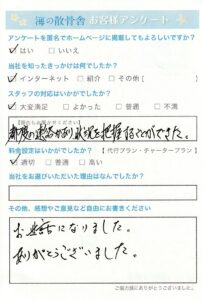 海の散骨舎 お客様アンケート
アンケートを匿名でホームページに掲載してもよろしいですか?
✓はい □いいえ
当社を知ったきっかけは何でしたか?
✓インターネット □紹介 □その他[ ]
スタッフの対応はいかがでしたか?
✓大変満足 □よかった □普通 □不満
都度の連絡があり状況を把握することができた。
料金設定はいかがでしたか?【代行プラン・チャータープラン】
✓適切 □普通 □高い
当社をお選びいただいた理由はなんでしたか?
その他、感想やご意見など自由にお書きください
お世話になりました。
ありがとうございました。
ご協力誠にありがとうございました。